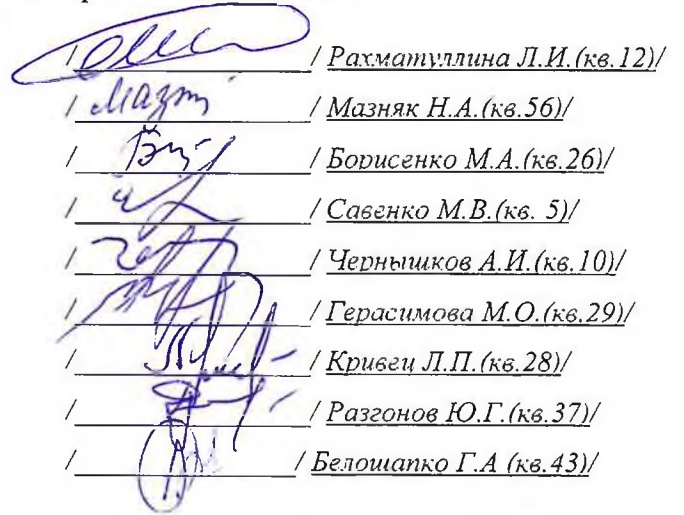 / / Рахматуллина Л.И.(кв.12)/
/ Мазн / Мазняк Н.А.(кв.56)/
/ / Борисенко М.А.(кв.26)/
/ / Савенко М.В.(кв. 5)/
/ / Чернышков А.И.(кв.10)/
/ / Герасимова М.О.(кв.29)/
/ / Кривец Л.П.(кв.28)/
/ / Разгонов Ю.Г.(кв.37)/
/ / Белошапко Г.А (кв.43)/